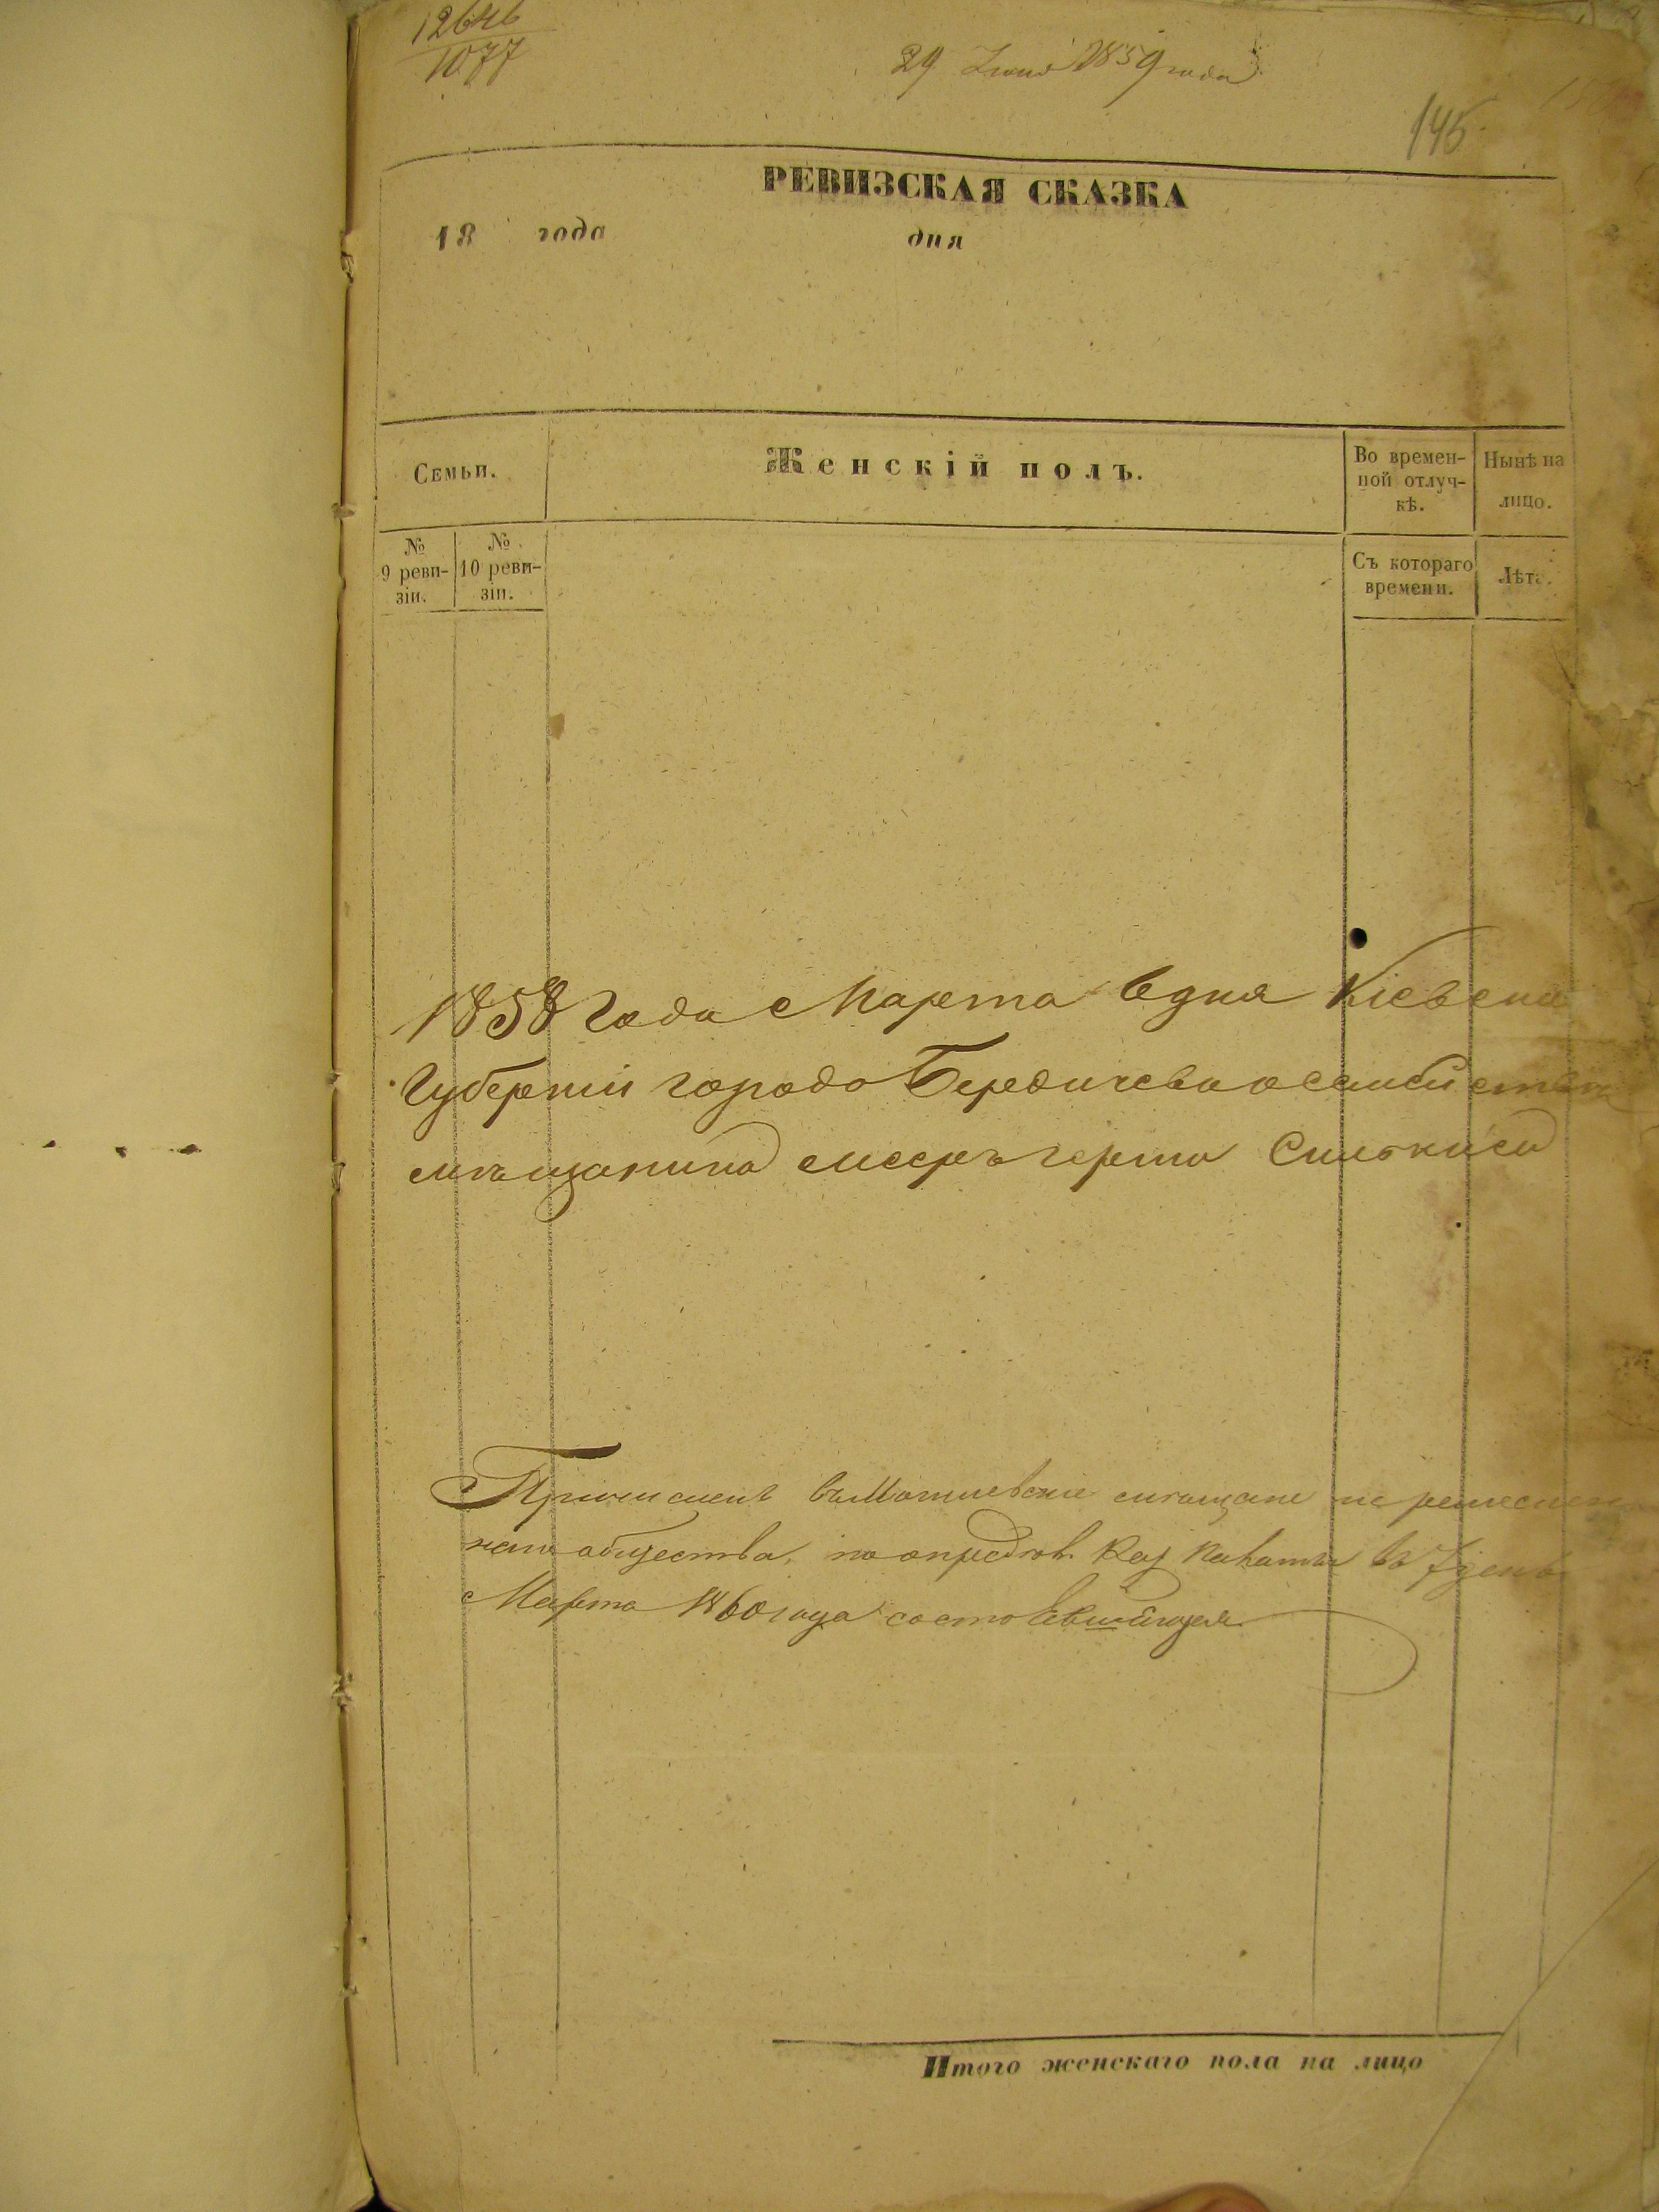 12646
1077
29 Іюня 1859 года
145
РЕВИЗСКАЯ СКАЗКА
18 года дня
Семьи.
Женскій полъ.
Во времен-
ной отлуч-
кѣ.
Нынѣ на
лицо.
№
9 реви-
зіи.
№
10 реви-
зіи.
Съ котораго
времени.
Лѣта.
1858 Года Марта дня Кіевской
Губерніи города Бердичева о семействѣ
мѣщанина
Причисленъ въ мѣщане
общества, по опредѣл. Каз Палаты въ 7 день
Марта 1860 года состоявшейся
Итого женскаго пола на лицо